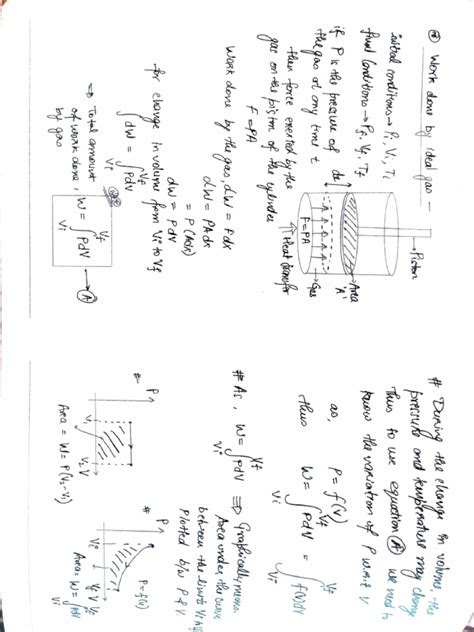 * Work done by ideal gas —
initial conditions → Pi, Vi, Ti
final conditions → Pf, Vf, Tf
if P is the pressure of
the gas at any time t
then force exerted by the
gas on the piston of the cylinder
F = PA
Piston
dx
Area
'A'
Gas
F = PA
Heat transfer
Work done by the gas, dW = Fdx
dW = PAdx
= P(Adx)
dW = PdV
for change in volume from Vi to Vf
∫dW = ∫PdV
Vf
Vi
⇒ Total amount
of work done,
by gas
W = ∫PdV
Vf
Vi
→ (A)
# During the change in volume, the
pressure and temperature may change
Thus to use equation (A) we need to
know the variation of P w.r.t V
as, P = f(V)
thus W = ∫PdV = ∫f(V)dV
Vf Vf
Vi Vi
# As, W = ∫PdV ⇒ Graphically means
Vf
Vi
Area under the curve
between the limit Vi to Vf
plotted b/w P & V.
#
P
V1 V2 V
Area = W = P(V2-V1)
#
P
P = f(V)
Vi Vf V
Area = W = ∫PdV
Vf
Vi